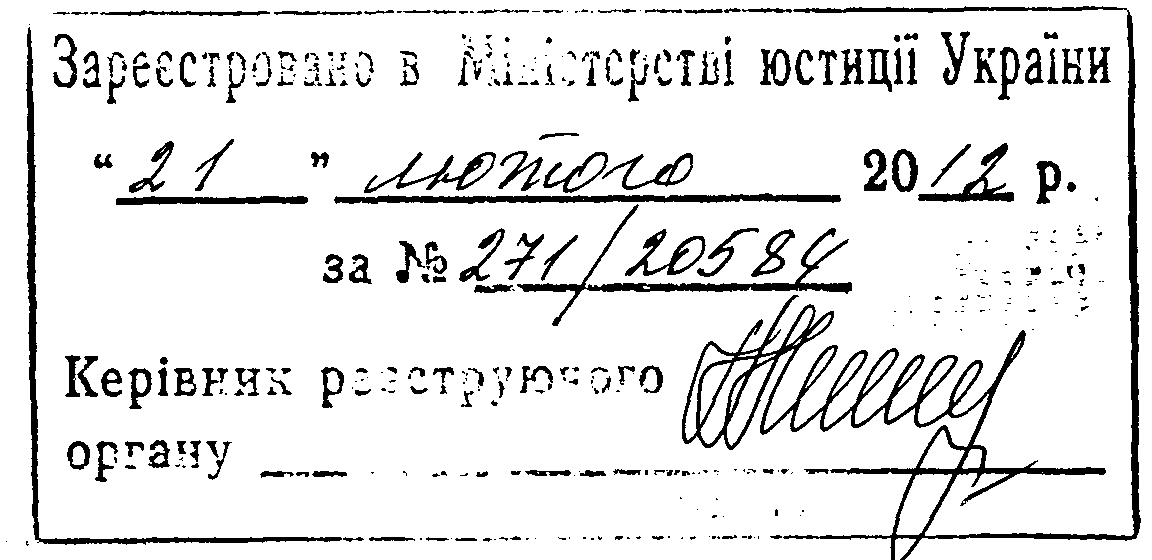 Зареєстровано в Міністерстві юстиції України
“ 21 ” лютого 2012 р.
за № 271/20584
Керівник реєструючого
органу